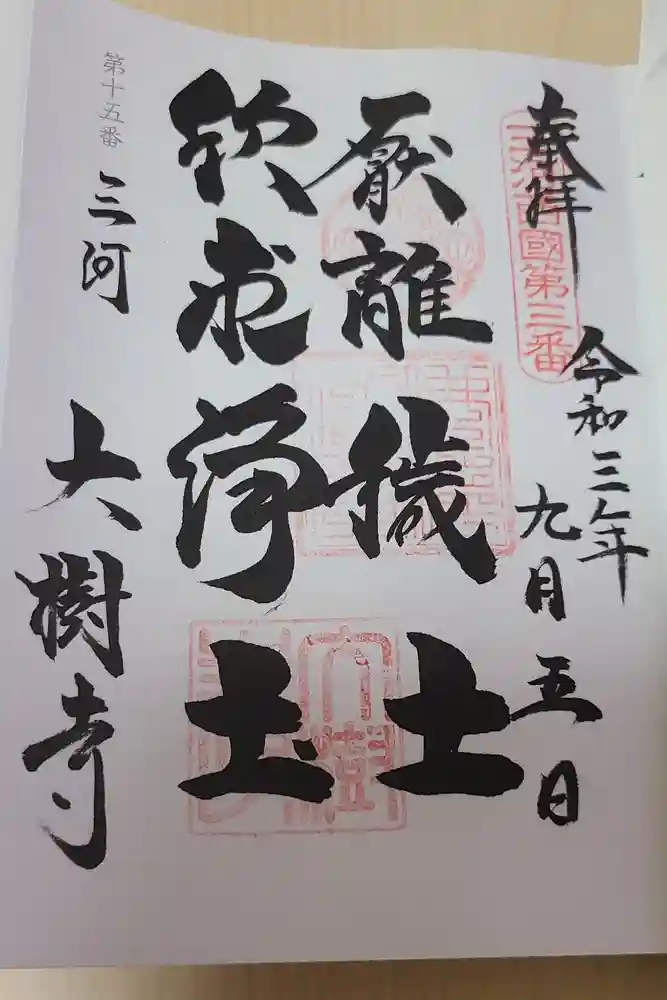 奉拝
令和三年
九月五日
國第三番
厭離穢土
欣求浄土
第十五番
三河
大樹寺